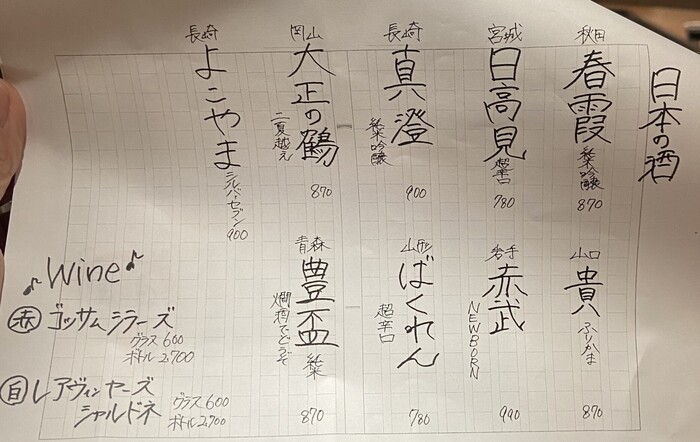 日本の酒
秋田
春霞
純米吟醸
870
宮城
日高見
超辛口
780
長崎
真澄
純米吟醸
900
岡山
大正の鶴
二夏越え
870
長崎
よこやま
シルバーセブン
900
山口
貴
ふりかま
870
岩手
赤武
NEWBORN
990
山形
ばくれん
超辛口
780
青森
豊盃
純米
燗酒でどうぞ
870
♪Wine♪
赤 ゴッサムシラーズ
グラス600
ボトル2,700
白 レアヴィンヤーズ
シャルドネ
グラス600
ボトル2,700